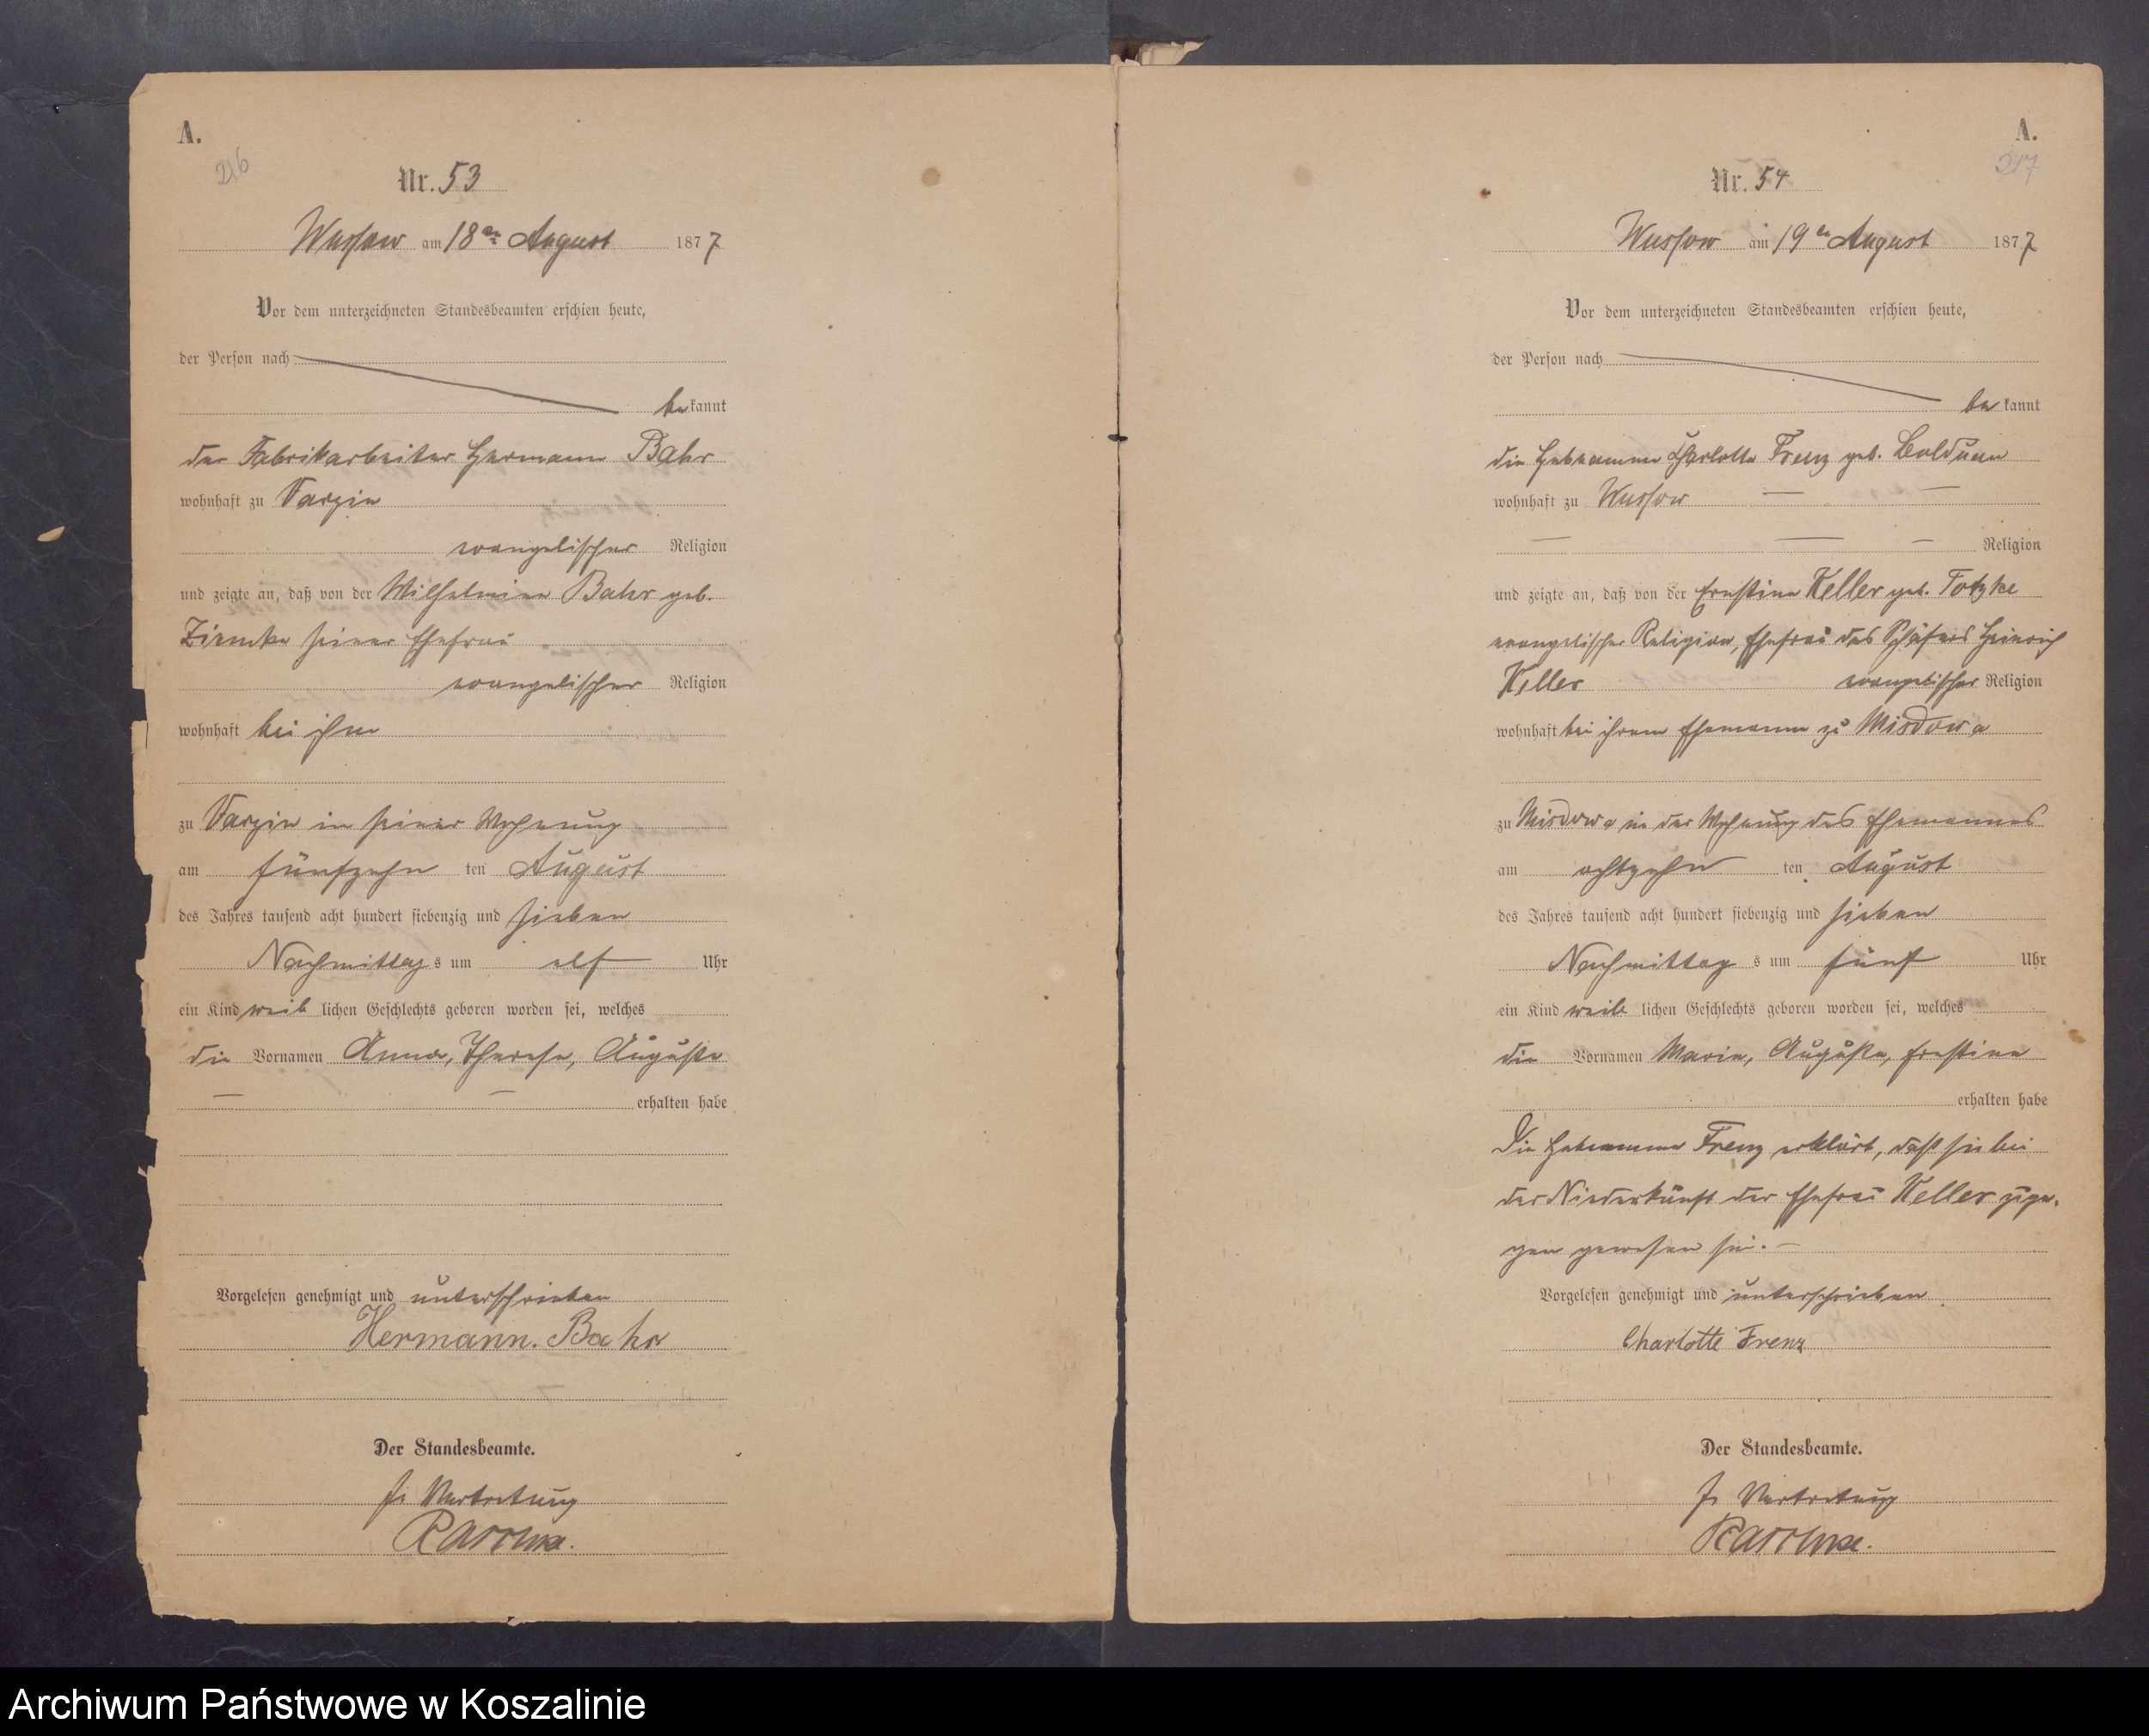 A.
216
Nr. 53
Wussow am 18ten August 1877
Vor dem unterzeichneten Standesbeamten erschien heute,
der Person nach
bekannt
der Fabrikarbeiter Hermann Bahr
wohnhaft zu Varzin
evangelischer Religion
und zeigte an, daß von der Wilhelmine Bahr geb.
seiner Ehefrau
evangelischer Religion
wohnhaft bei ihm
zu Varzin in seiner Wohnung
am fünfzehn ten August
des Jahres tausend acht hundert siebenzig und sieben
Nachmittags um elf Uhr
ein Kind weiblichen Geschlechts geboren worden sei, welches
die Vornamen Anna, Therese, Auguste
erhalten habe
Vorgelesen genehmigt und unterschrieben
Hermann. Bahr
Der Standesbeamte.
In Vertretung
A.
217
Nr. 54
Wussow am 19ten August 1877
Vor dem unterzeichneten Standesbeamten erschien heute,
der Person nach
bekannt
die Hebeamme Charlotte Frenz geb. Bolduan
wohnhaft zu Wussow
Religion
und zeigte an, daß von der Ernstine Keller geb. Totzke
evangelischer Religion, Ehefrau des Schäfers Heinrich
Keller evangelischer Religion
wohnhaft bei ihrem Ehemanne zu Misdow
zu Misdow in der Wohnung des Ehemannes
am achtzehn ten August
des Jahres tausend acht hundert siebenzig und sieben
Nachmittags um fünf Uhr
ein Kind weiblichen Geschlechts geboren worden sei, welches
die Vornamen Marie, Auguste, Ernstine
erhalten habe
Die Hebeamme Frenz erklärt, daß sie bei
der Niederkunft der Ehefrau Keller zuge-
gen gewesen sei. —
Vorgelesen genehmigt und unterschrieben
Charlotte Frenz
Der Standesbeamte.
In Vertretung
Archiwum Państwowe w Koszalinie